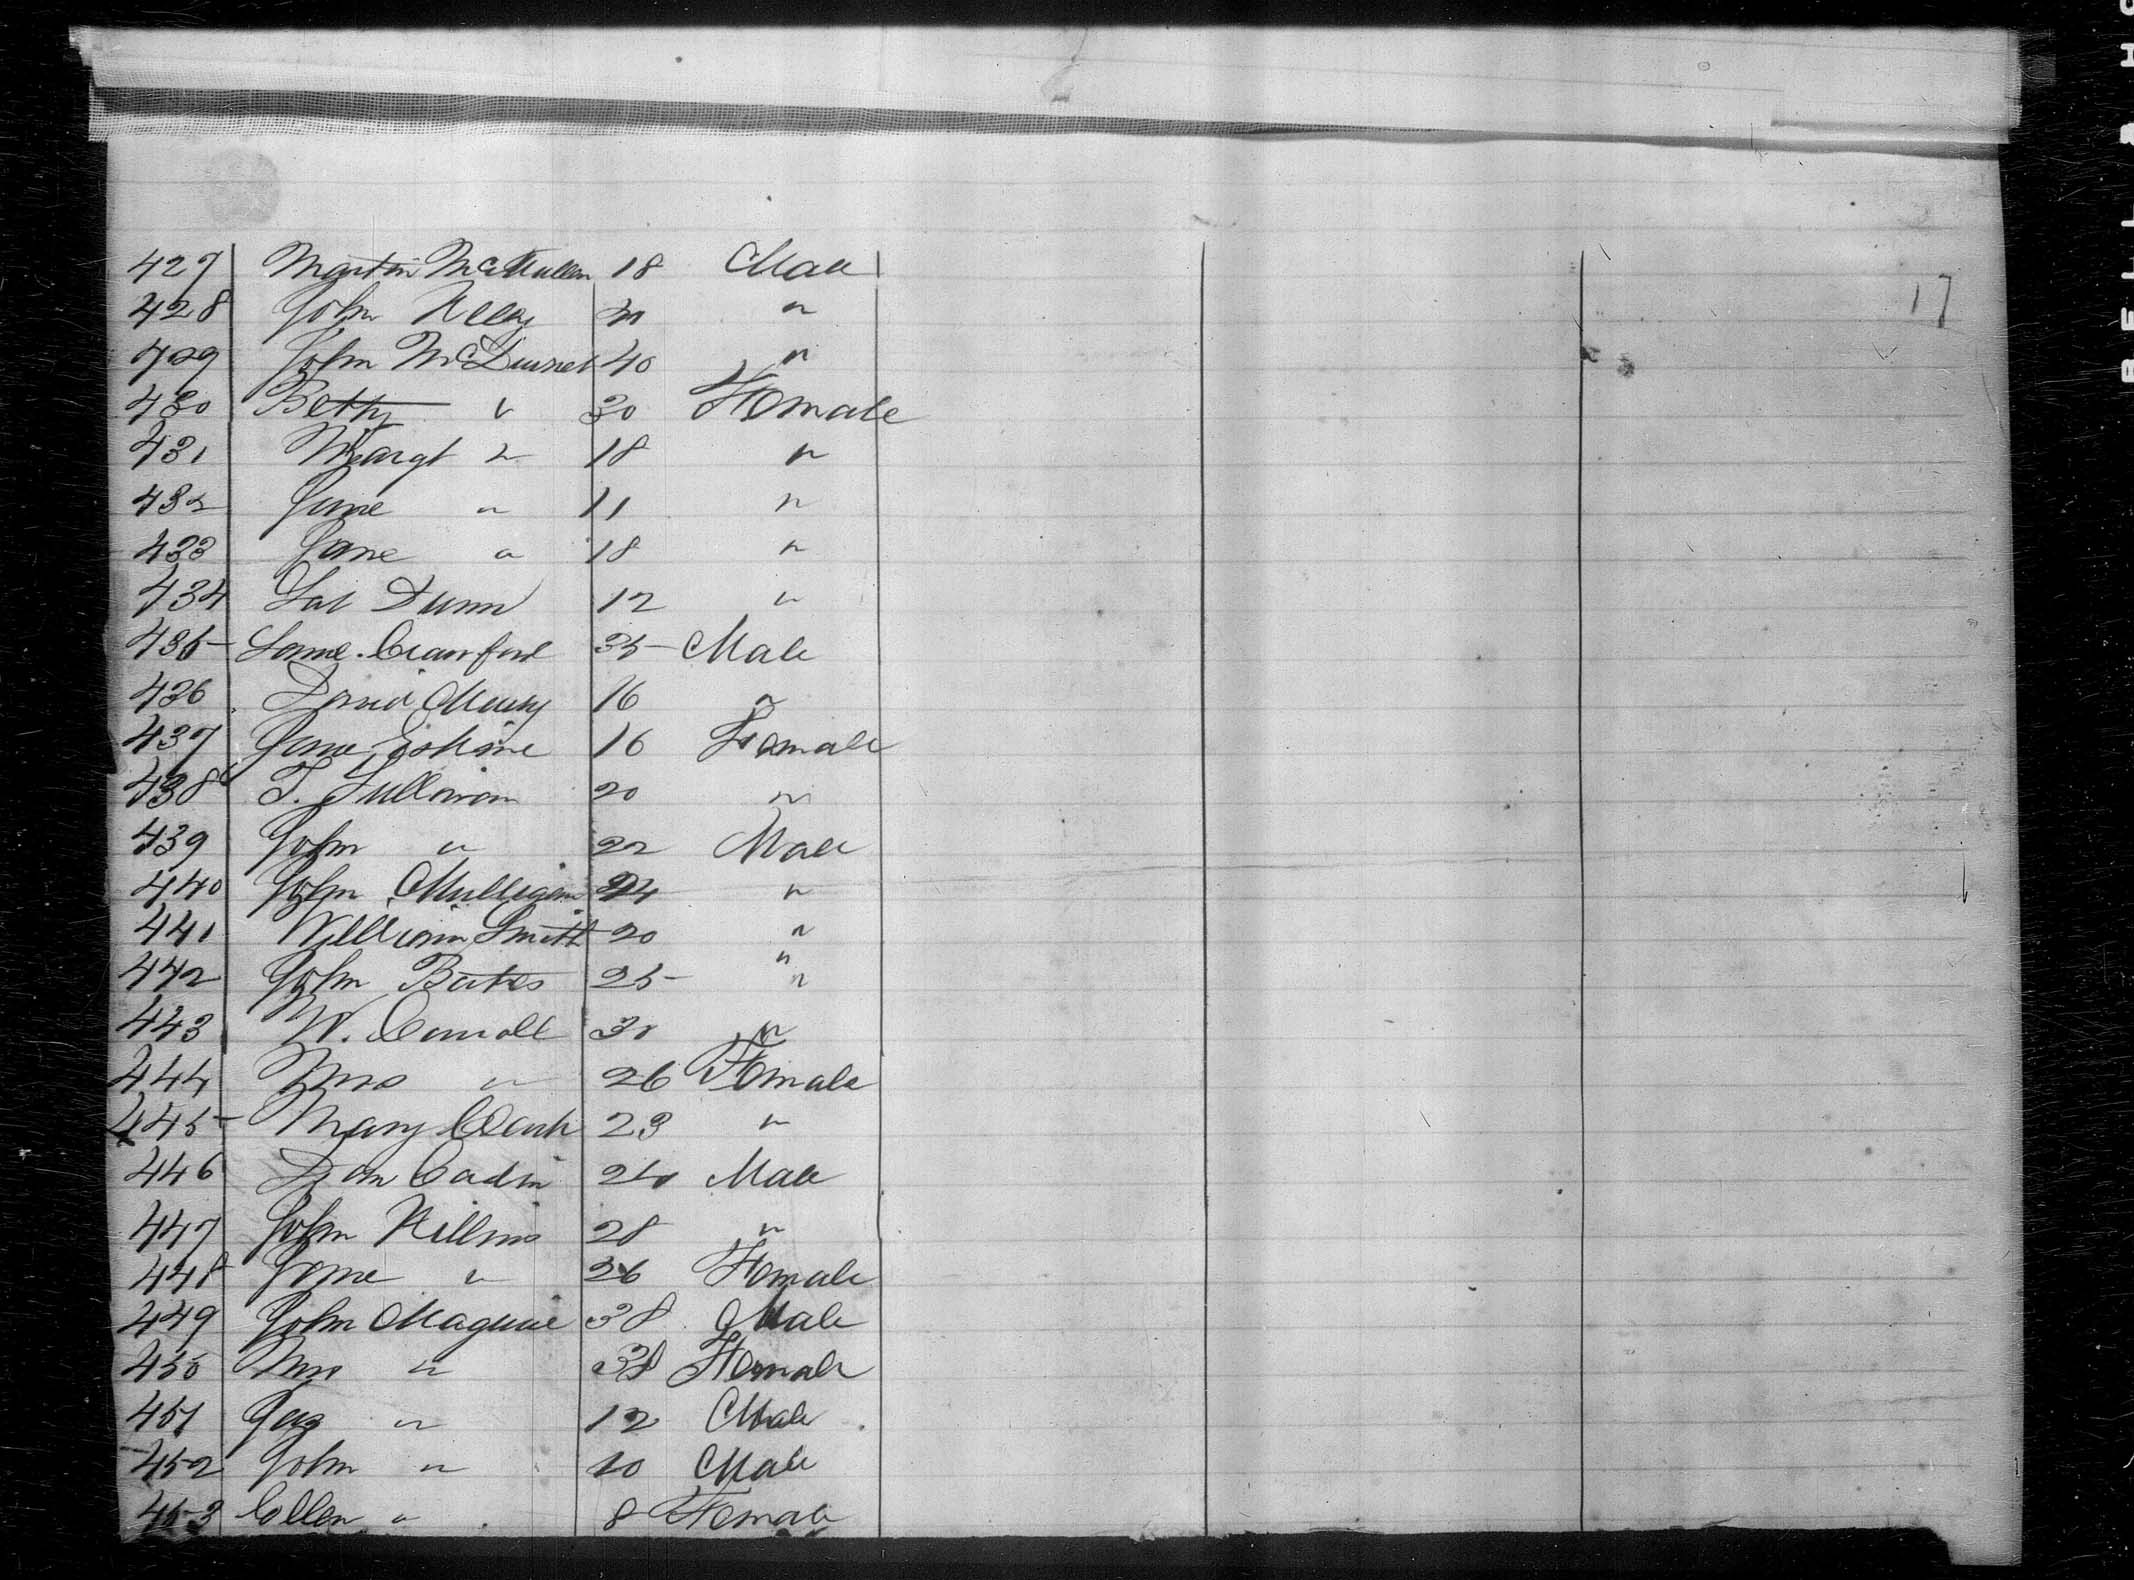 427 Martin McMullen 18 Male
428 John Kelly 30 "
17
429 John McDurnet 40 "
430 Betty " 30 Female
431 Margt " 18 "
432 Jane " 11 "
433 Jane " 18 "
434 Sal Dunn 12 "
435 Saml. Crawford 35 Male
436 David Murry 16 "
437 Jane Eskine 16 Female
438 T. Sullivan 20 "
439 John " 22 Male
440 John Mulligan 24 "
441 William Smith 20 "
442 John Bates 25 "
443 W. Carroll 30 "
444 Mrs " 26 Female
445 Mary Clark 23 "
446 Dan Cadin 24 Male
447 John Killins 28 "
448 Jane " 26 Female
449 John Maguire 38 Male
450 Mrs " 38 Female
451 Jas " 12 Male
452 John " 10 Male
453 Ellen " 8 Female